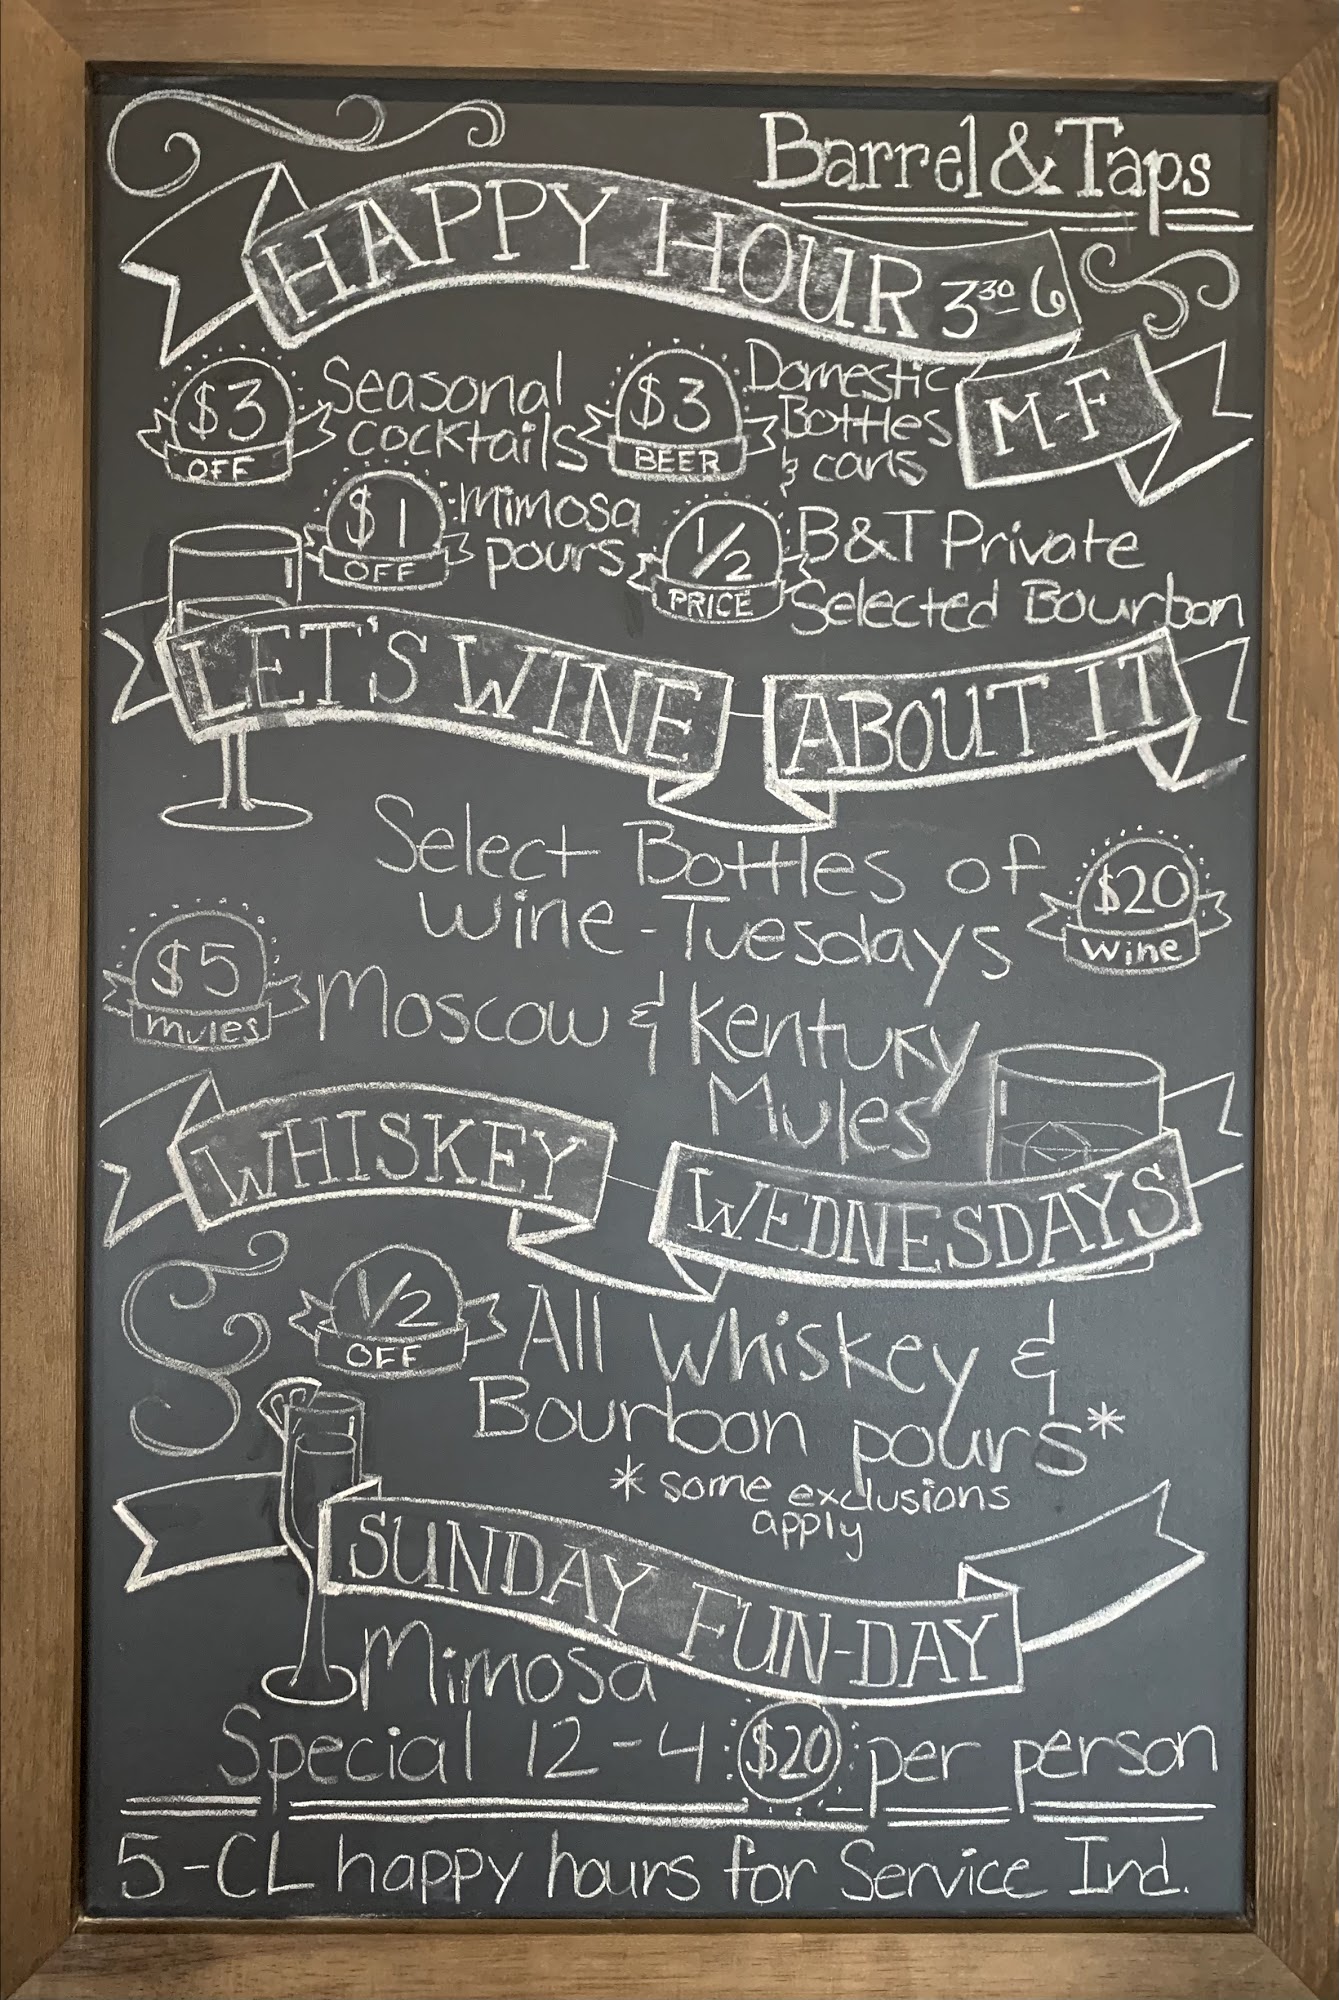 Barrel & Taps
HAPPY HOUR 3³⁰-6
M-F
$3 OFF
Seasonal
cocktails
$3 BEER
Domestic
Bottles
& cans
$1 OFF
Mimosa
pours
1/2 PRICE
B&T Private
Selected Bourbon
LET'S WINE ABOUT IT
Select Bottles of
Wine - Tuesdays
$20 Wine
$5 mules
Moscow & Kentucky
Mules
WHISKEY WEDNESDAYS
1/2 OFF
All Whiskey &
Bourbon pours*
* some exclusions
apply
SUNDAY FUN-DAY
Mimosa
Special 12-4 $20 per person
5-CL happy hours for Service Ind.